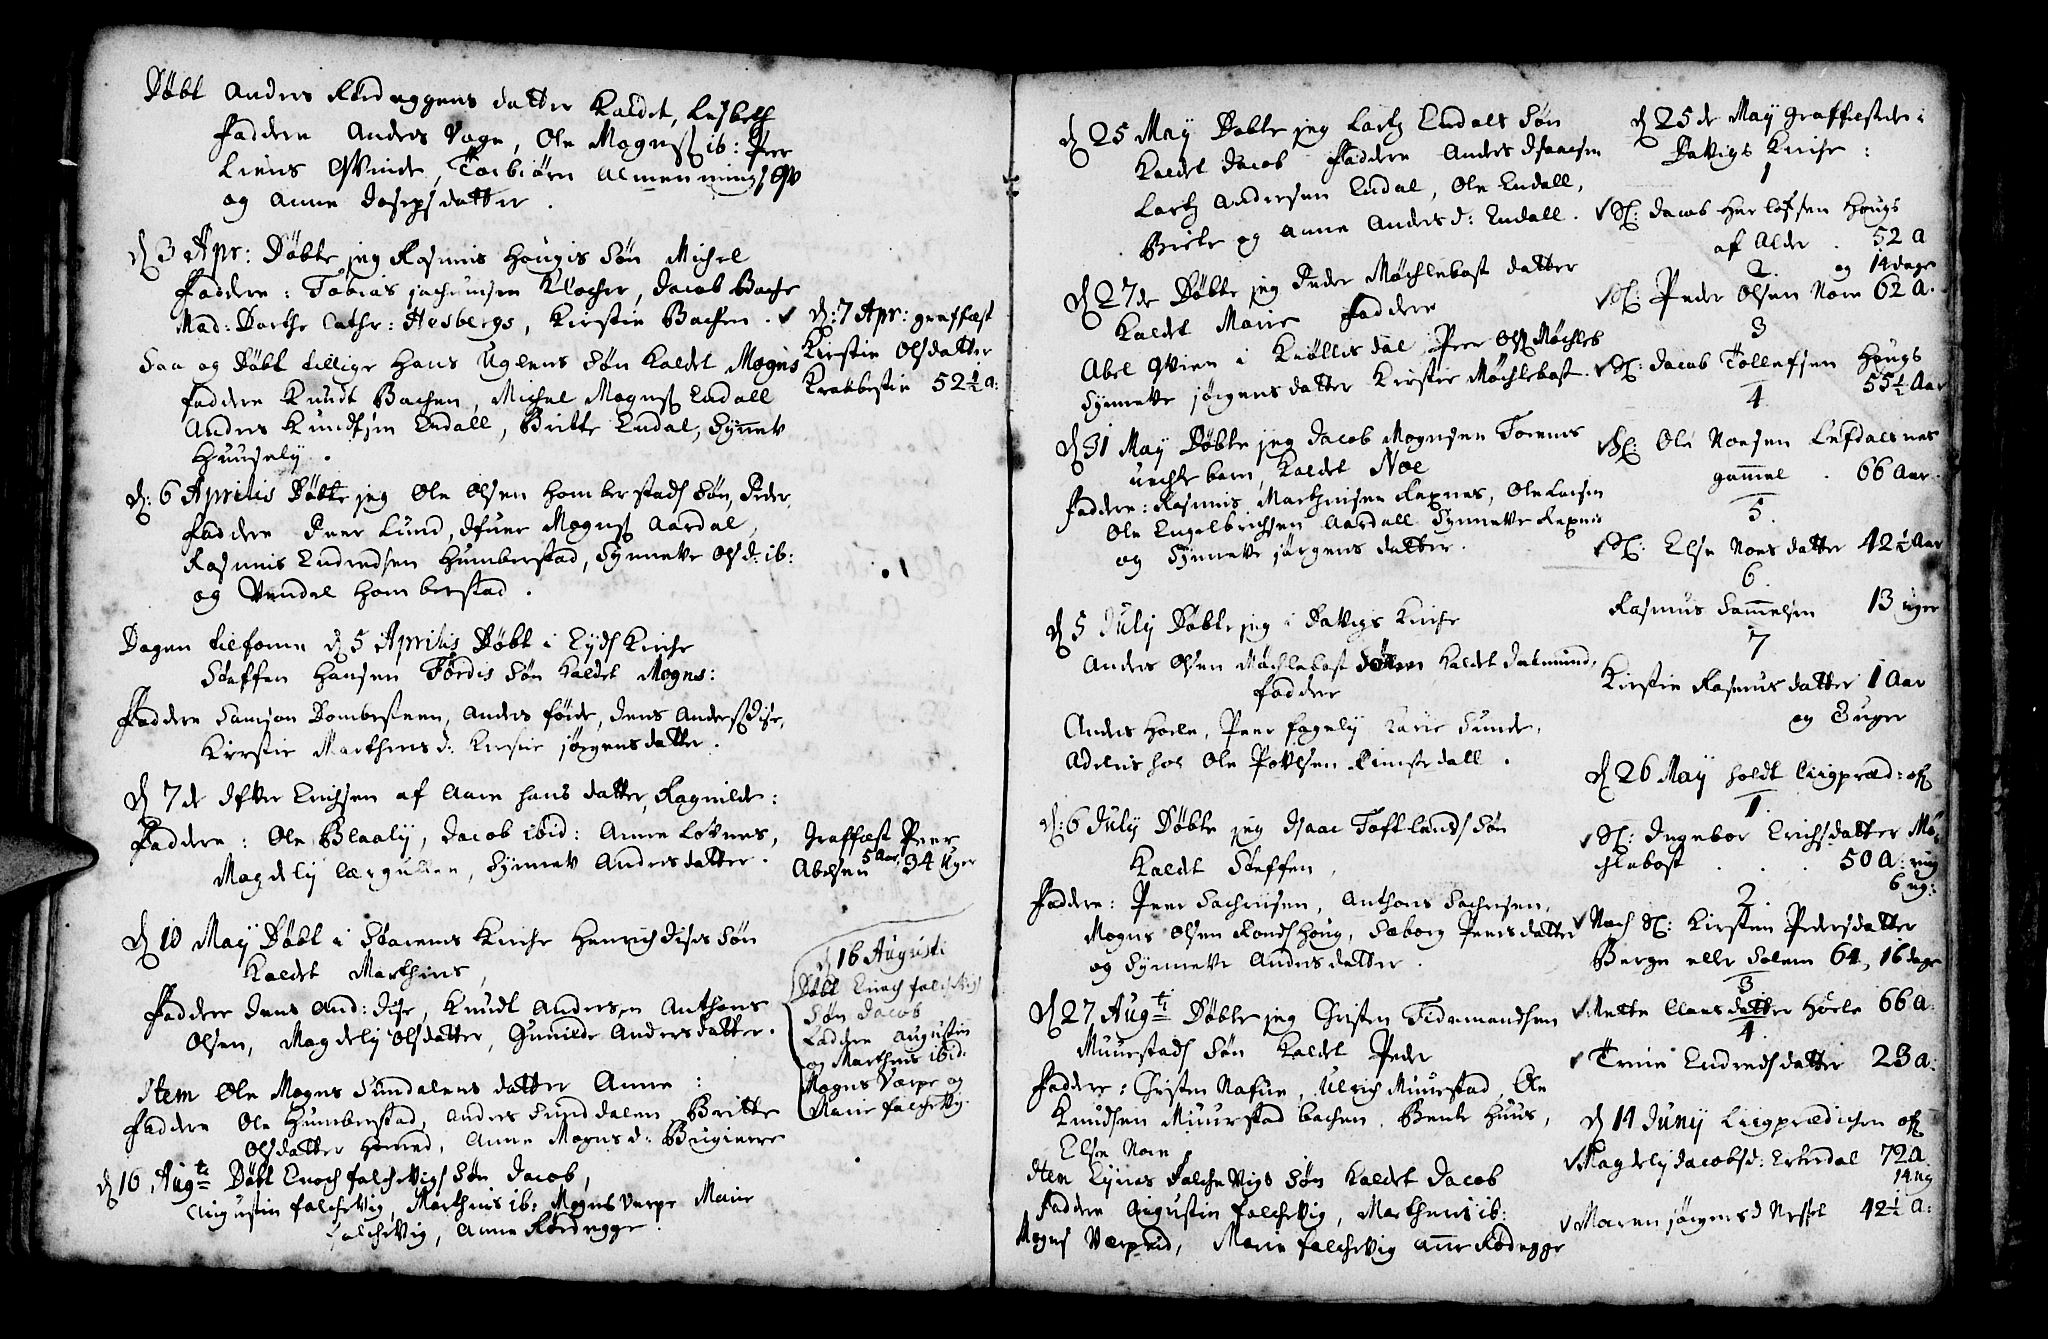 Døbt Anders Rødeggens datter Kaldet, Lisbeth
Faddere Anders Vage, Ole Mognsß ib: Peer
Liens Qvinde, Torbiørn Almennings Qv
og Anne Josepsdatter.
d 3 Apr: Døbte jeg Rasmus Hougis Søn Michel
Faddere: Tobias Jochumsen Klocher, Jacob Bache
Mad: Dorthe Cathr: Hesbergs, Kirstin Bachen.
Saa og Døbt tillige Hans Uglens Søn kaldet Mogns
faddere Knudt Bachen, Michel Mognsß Endall
Anders Knudtsen Endall, Britte Endal, Synnev
Huusely.
d: 6 Aprilis Døbte jeg Ole Olsen Homberstads Søn, Peder,
Faddere Peer Lund, Ifuer Mognsß Aardal,
Rasmus Endredsen Humberstad, Synneve Olsd: ib:
og Vendel Homberstad.
Dagen tilforne d 5 Aprilis Døbt i Eyds Kirche
Steffen Hansen Tørdis Søn kaldet Mogns:
Faddere Samson Dombesteen, Anders føide, Jens Andersß Dise,
Kirstie Marthinsd: Kirstie Jørgensdatter.
d 7de Ifver Erichsen af Aare hans datter, Ragnilde:
Faddere: Ole Blaaly, Jacob ibid: Anne Lotnes,
Magdely Lærgulen, Synnev Andersdatter.
d 10 May Døbt i Starens Kirche Henrich Dises Søn
Kaldet Marthinus,
Faddere Jens And: Dise, Knudt Andersen Anthons
Olsen, Magdely Olsdatter, Gunilde Andersdatter.
Item Ole Mogns Sundalens datter Anne:
Faddere Ole Humberstad, Anders Sunddalen Britte
Olsdatter Homed, Anne Mognsd: Bugiere
d 16 Augti Døbt Enoch falchevigs Søn Jacob,
Augustin falchevig, Marthinus ib: Mogns Varpe Marie
falchevig, Anne Rødegge.
d: 7 Apr: graffæst
Kirstin Olsdatter
Krakestie 52½ a:
Graffæst Peer
Abelsen 5 Aar, 34 Uger
d 16 Augusti
Døbt Enoch falchevigs
Søn Jacob
Faddere Augustin
og Marthinus ibid:
Mogns Varpe og
Marie falchevig.
d 25 May Døbte jeg Lartz Endals Søn
Kaldet Jacob Faddere Anders Isaacsen
Lartz Andersen Endal, Ole Endall,
Birte og Anne Andersd: Endall.
d 27de Døbte jeg Peder Møchlebost datter
Kaldet Marie Faddere
Abel Qvien i Kiøllisdal, Peer Olsß Møchleb
Synneve Jørgensdatter Kirstie Møchlebost.
d 31 May Døbte jeg Jacob Mognsen Torenes
uechte barn, Kaldet Noe
Faddere: Rasmus Marthinsen Raxnes, Ole Larsen
Ole Engelbrichsen Aardall Synneve Raxnes
og Synneve Jørgens datter.
d 5 July Døbte jeg i Davigs Kirche
Anders Olsen Møchlebost datter kaldet Dalmund,
Faddere
Anders Hoele, Peer fagely Karie Sunde,
Adelus hol Ole Povelsen Rimstdall.
d: 6 July Døbte jeg Isaac Tofftlands Søn
Kaldet Steffen,
Faddere: Peer Zachrisen, Anthons Zachrisen,
Mogns Olsen Rondshoug, Seborg Peersdatter
og Synneve Andersdatter.
d 27 Augti Døbte jeg Christen Tidemandsen
Muurstads Søn Kaldet Peder
Faddere: Christen Nafue, Ulrich Muurstad, Ole
Knudsen Muurstad bachen, Bente Huus,
Else Nore
Item Eynes Falchevigs Søn Kaldet Jacob
Faddere Augustin Falchevig, Marthinus ib:
Mogns Varpeid, Marie falchevig Anne Rødegge
d 25de May Graffæstede i
Davigs Kirche:
1
Sl: Jacob Herlofsen Hougs
af Alder. 52 a
og 14 dage
2
Sl: Peder Olsen Nore 62 a.
3
Sl: Jacob Tollefsen Hougs
55½ Aar
4
Sl: Ole Noesen Lefdalsnes
gammel. 66 Aar.
5
Sl: Else Noesdatter 42½ Aar
6
Rasmus Sammelsen 13 uger
7
Kirstin Rasmusdatter 1 Aar
og 3 uger
d 26 May holdt Liigpræd: ofr
1
Sl: Ingebor Erichsdatter Mø-
chlebost . . . 50 a: min
6 ug:
2
Noch Sl: Kirsten Pedersdatter
Berge eller Solem 64, 16 dage
3
Mette Claus datter Hoele 66 a:
4
Trine Endreds datter 23 a:
d 11 Juny Liigprædichen ofr
Magdely Jacobsd: Ervedal 72 a
14 ug
Maren Jørgensd Nessel 42½ a: